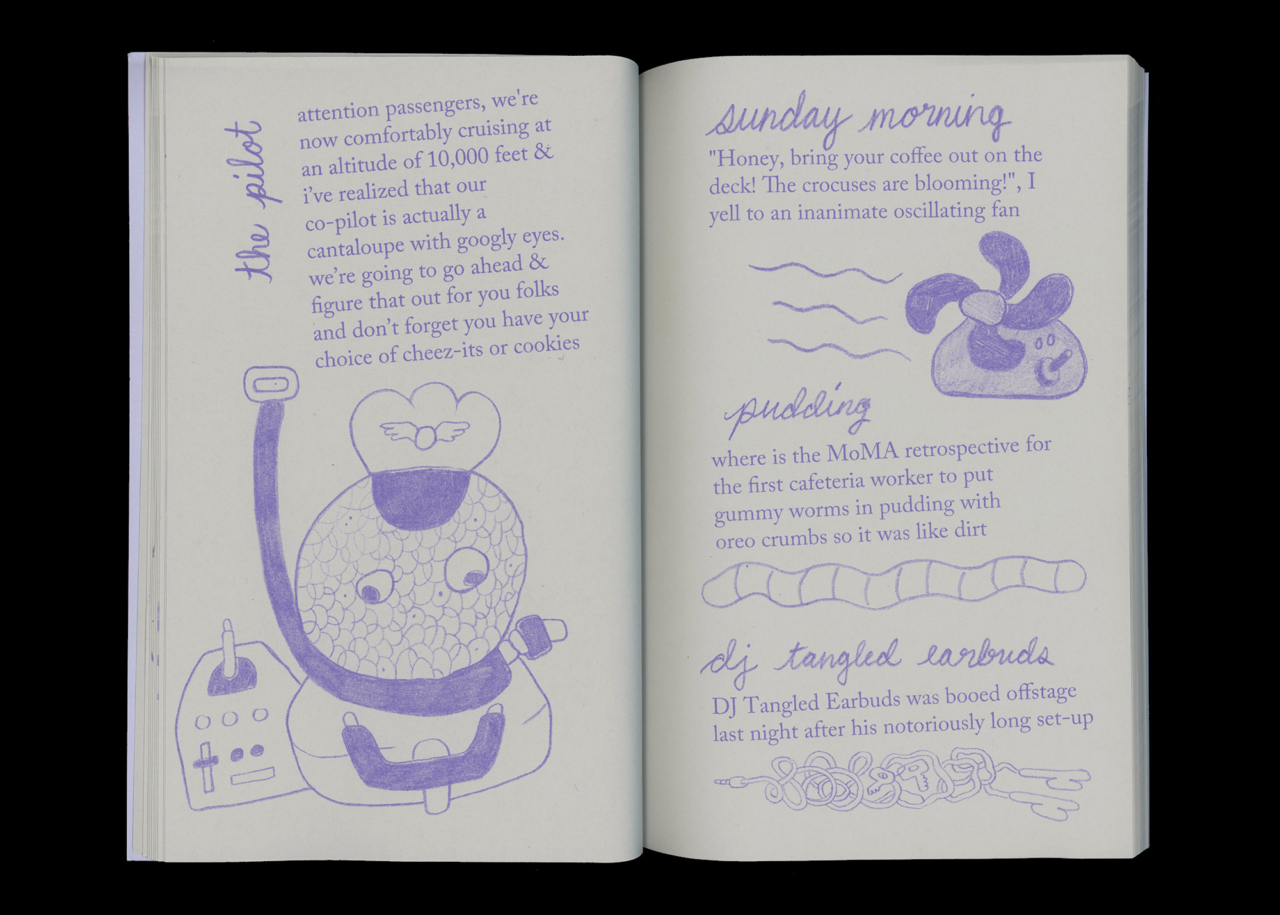 the pilot
attention passengers, we're
now comfortably cruising at
an altitude of 10,000 feet &
i've realized that our
co-pilot is actually a
cantaloupe with googly eyes.
we're going to go ahead &
figure that out for you folks
and don't forget you have your
choice of cheez-its or cookies
sunday morning
"Honey, bring your coffee out on the
deck! The crocuses are blooming!", I
yell to an inanimate oscillating fan
pudding
where is the MoMA retrospective for
the first cafeteria worker to put
gummy worms in pudding with
oreo crumbs so it was like dirt
dj tangled earbuds
DJ Tangled Earbuds was booed offstage
last night after his notoriously long set-up